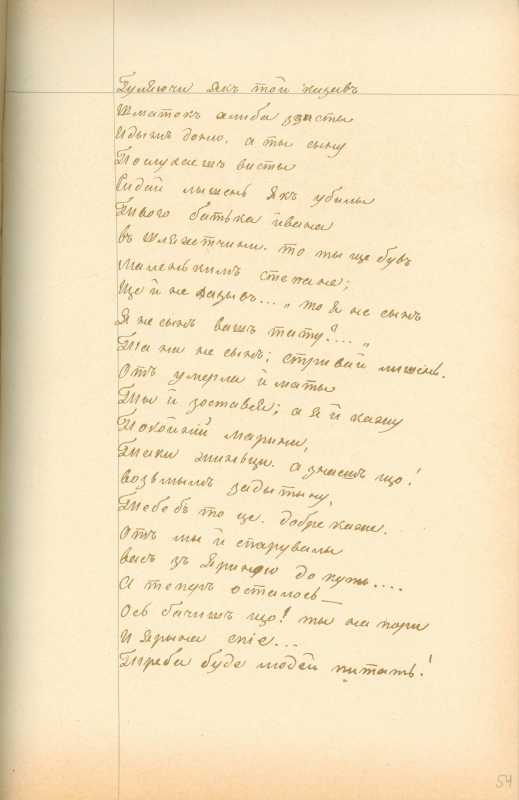 Гуляючи якъ той казавъ
Шматокъ алыба зъисты
Идышъ доню, а ты сыну
Послухаешъ висты
Сидай лышень якъ убылы
Твого батька ивана
въ шляхетчини. то ты ще бувъ
Маленькимъ степане;
Ще й не лазывъ... „то я не сынъ
Я не сынъ вашъ тату?... „
Та на не сынъ; стривай лышень.
Отъ умерла й маты
Ты й зостався; а я й кажу
Покойній Марини,
Таки жинци. а знаешъ що!
возьмымъ за дытыну,
Тебе бъ то це. добре каже.
Отъ мы й спарувалы
васъ зъ Яриною до купы....
А теперъ осталось—
Ось бачишъ що! ты на пори
И Ярына спіе...
Треба буде людей питать!
54